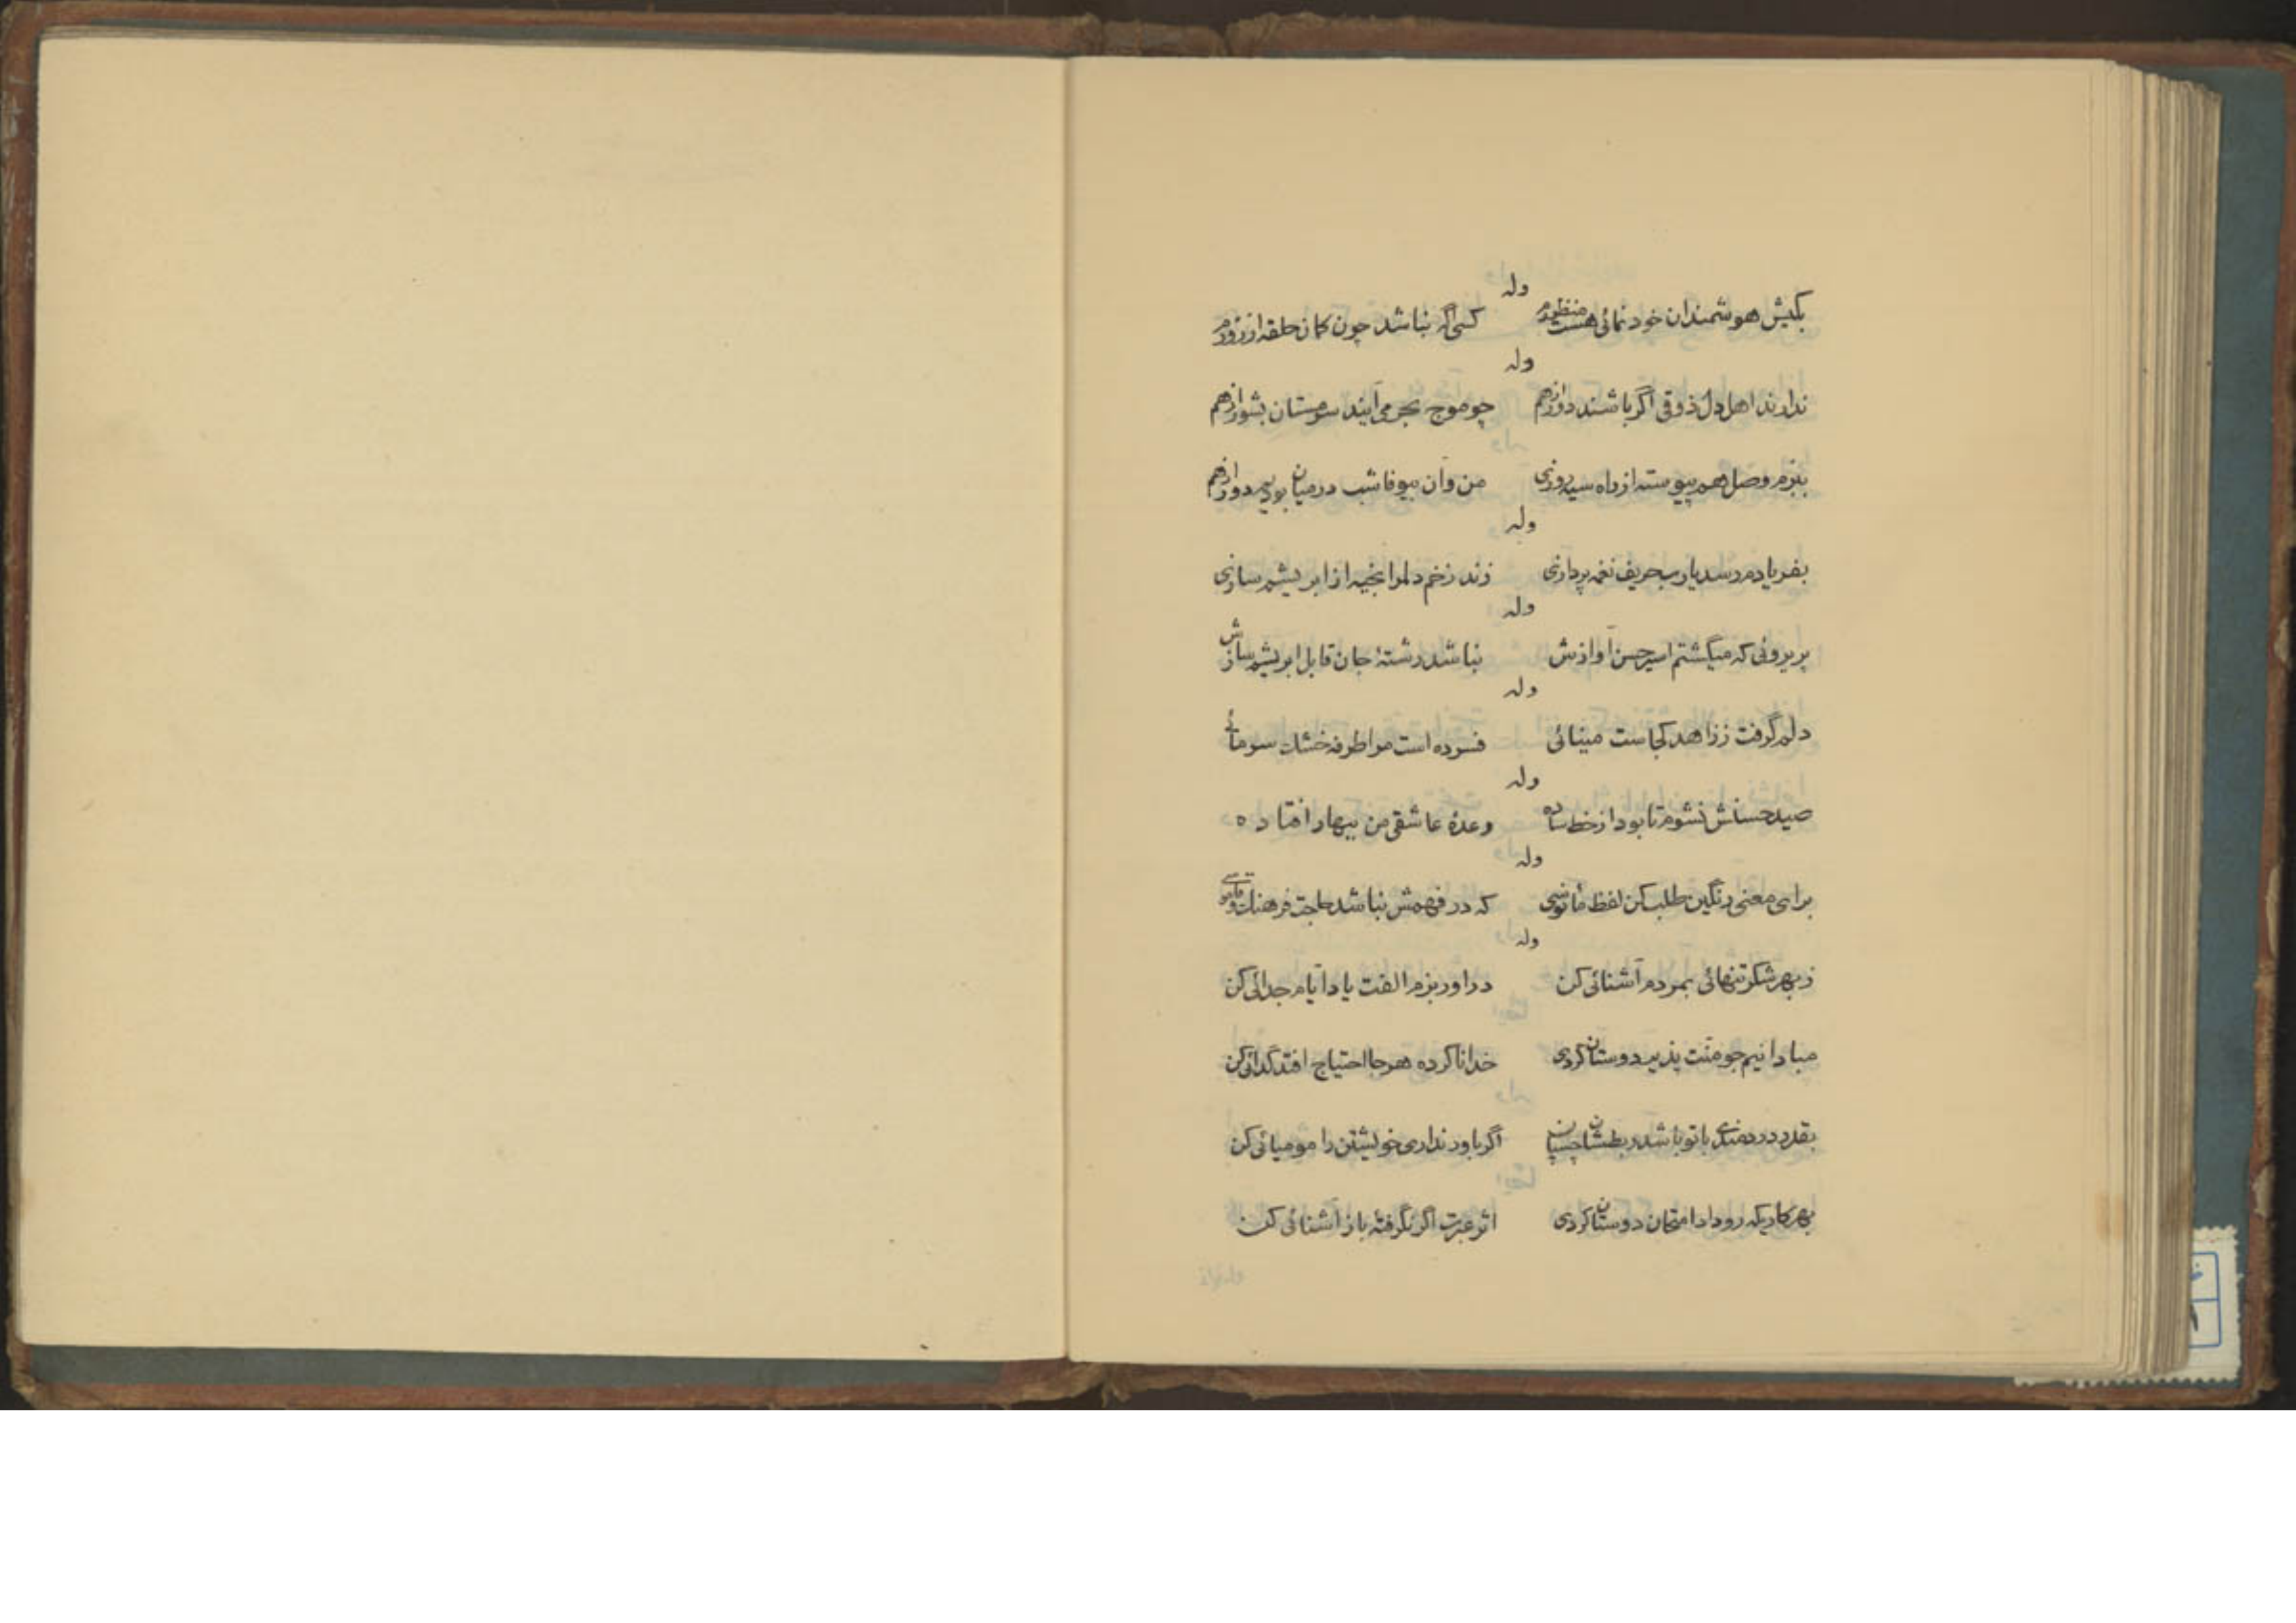 وله
بکیش هوشمندان خود نمائی هست منظورم کسی اگر نباشد چون کمان حلقه از زورم
وله
ندارند اهل دل ذوقی اگر باشند دور از هم چو موج بحر می آیند سرمستان بشور از هم
ببزم وصل هم پیوسته از راه سیه روزی من و آن بیوفا شب در میان بودیم دور از هم
وله
بفریادم رسد یارب حریف نغمه پردازی زند زخم دلم را بخیه از ابریشم سازی
وله
پریروئی که میگشتم اسیر حسن آوازش نباشد رشتهٔ جان قابل ابریشم سازش
وله
دلم گرفت ز زاهد کجاست مینائی فسرده است مرا طرفه خشک سرمائی
وله
صید حسنش نشوم تا بود از خط ساده وعدهٔ عاشقی من ببهار افتاده
وله
برای معنی رنگین طلب کن لفظ مأنوسی که در فهمش نباشد حاجت فرهنگ و قاموسی
وله
ز بهر شکر تنهائی بمردم آشنائی کن در اور بزم الفت یاد ایام جدائی کن
مبادا نیم جو منت پذیر دوستان گردی خدا ناکرده هر جا احتیاج افتد گدائی کن
بقدر دردمندی با تو باشد ربطشان چسپان اگر باور نداری خویشتن را مومیائی کن
بهر کاریکه رو داد امتحان دوستان کردی اثر عبرت اگر نگرفتهٔ باز آشنائی کن